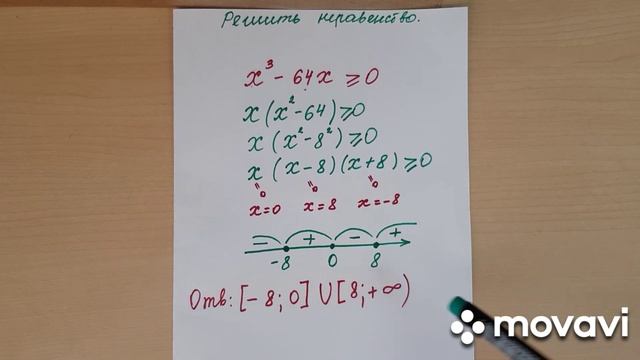 Решить неравенство.
x³ - 64x ⩾ 0
x (x² - 64) ⩾ 0
x (x² - 8²) ⩾ 0
x (x - 8) (x + 8) ⩾ 0
" 0 " 0 " 0
x = 0 x = 8 x = -8
- + - +
-8 0 8
Отв: [-8; 0] ∪ [8; +∞)
movavi